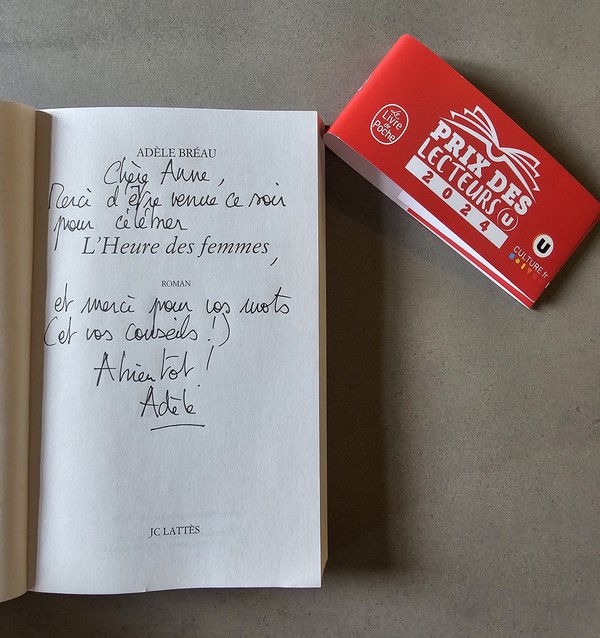 ADÈLE BRÉAU
Chère Anne,
Merci d'être venue ce soir
pour célébrer
L'Heure des femmes,
ROMAN
et merci pour vos mots
(et vos conseils !)
A bientot !
Adèle
JC LATTÈS
Le
Livre
de
Poche
PRIX DES
LECTEURS U
2024
U
CULTURE.fr